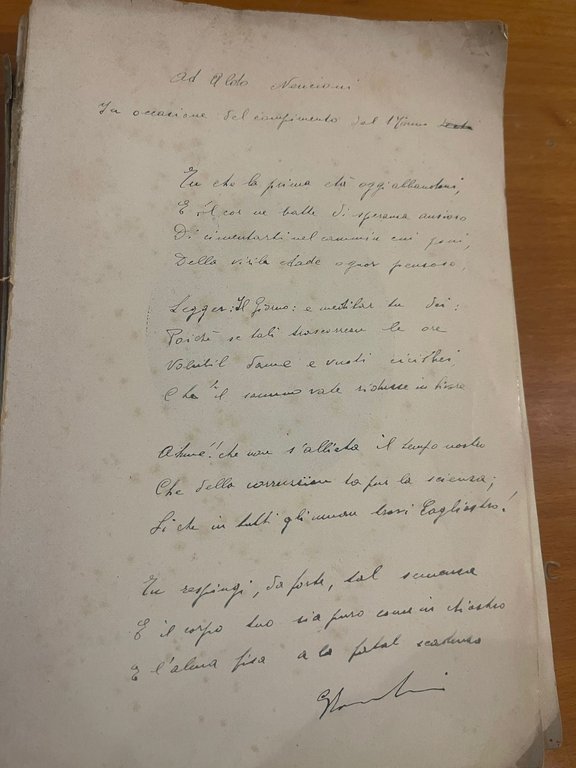 Ad Aldo Nencioni
In occasione del compimento del
Tu che la prima età oggi abbandoni,
E il cor ne batte di speranza ansioso
Di cimentarti nel cammin cui poni,
Della virile etade ognor pensoso,
Legger: Il Giorno: e meditar tu dei:
Poichè se tali trascorrean le ore
Volubil dame e vuoti cicisbei
Che il senno vale ridusse in
Ahimè! che non s'allieta il tempo nostro
Che della corruzion fa pur la scienza;
Sì che in tutti gli umani trovi Cagliostro!
Tu respingi, da forte, tal semenza
E il corpo tuo sia puro come in chiostro
E l'alma fisa a la fatal scadenza